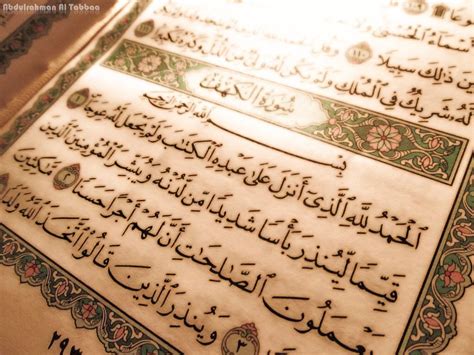 Abdulrahman Al Tabbaa
ٱلْحُسْنَىٰ
ذَٰلِكَ سَبِيلًا
لَّهُۥ شَرِيكٌ فِى ٱلْمُلْكِ وَلَمْ يَكُن لَّهُۥ وَلِىٌّ مِّنَ ٱلذُّلِّ
سُورَةُ ٱلْكَهْفِ
بِسْمِ ٱللَّهِ ٱلرَّحْمَـٰنِ ٱلرَّحِيمِ
ٱلْحَمْدُ لِلَّهِ ٱلَّذِىٓ أَنزَلَ عَلَىٰ عَبْدِهِ ٱلْكِتَـٰبَ وَلَمْ يَجْعَل لَّهُۥ عِوَجَا ١
قَيِّمًا لِّيُنذِرَ بَأْسًا شَدِيدًا مِّن لَّدُنْهُ وَيُبَشِّرَ ٱلْمُؤْمِنِينَ ٱلَّذِينَ
يَعْمَلُونَ ٱلصَّـٰلِحَـٰتِ أَنَّ لَهُمْ أَجْرًا حَسَنًا ٢ مَّـٰكِثِينَ
٣ وَيُنذِرَ ٱلَّذِينَ قَالُوا۟ ٱتَّخَذَ ٱللَّهُ وَلَدًا
٢٩٣